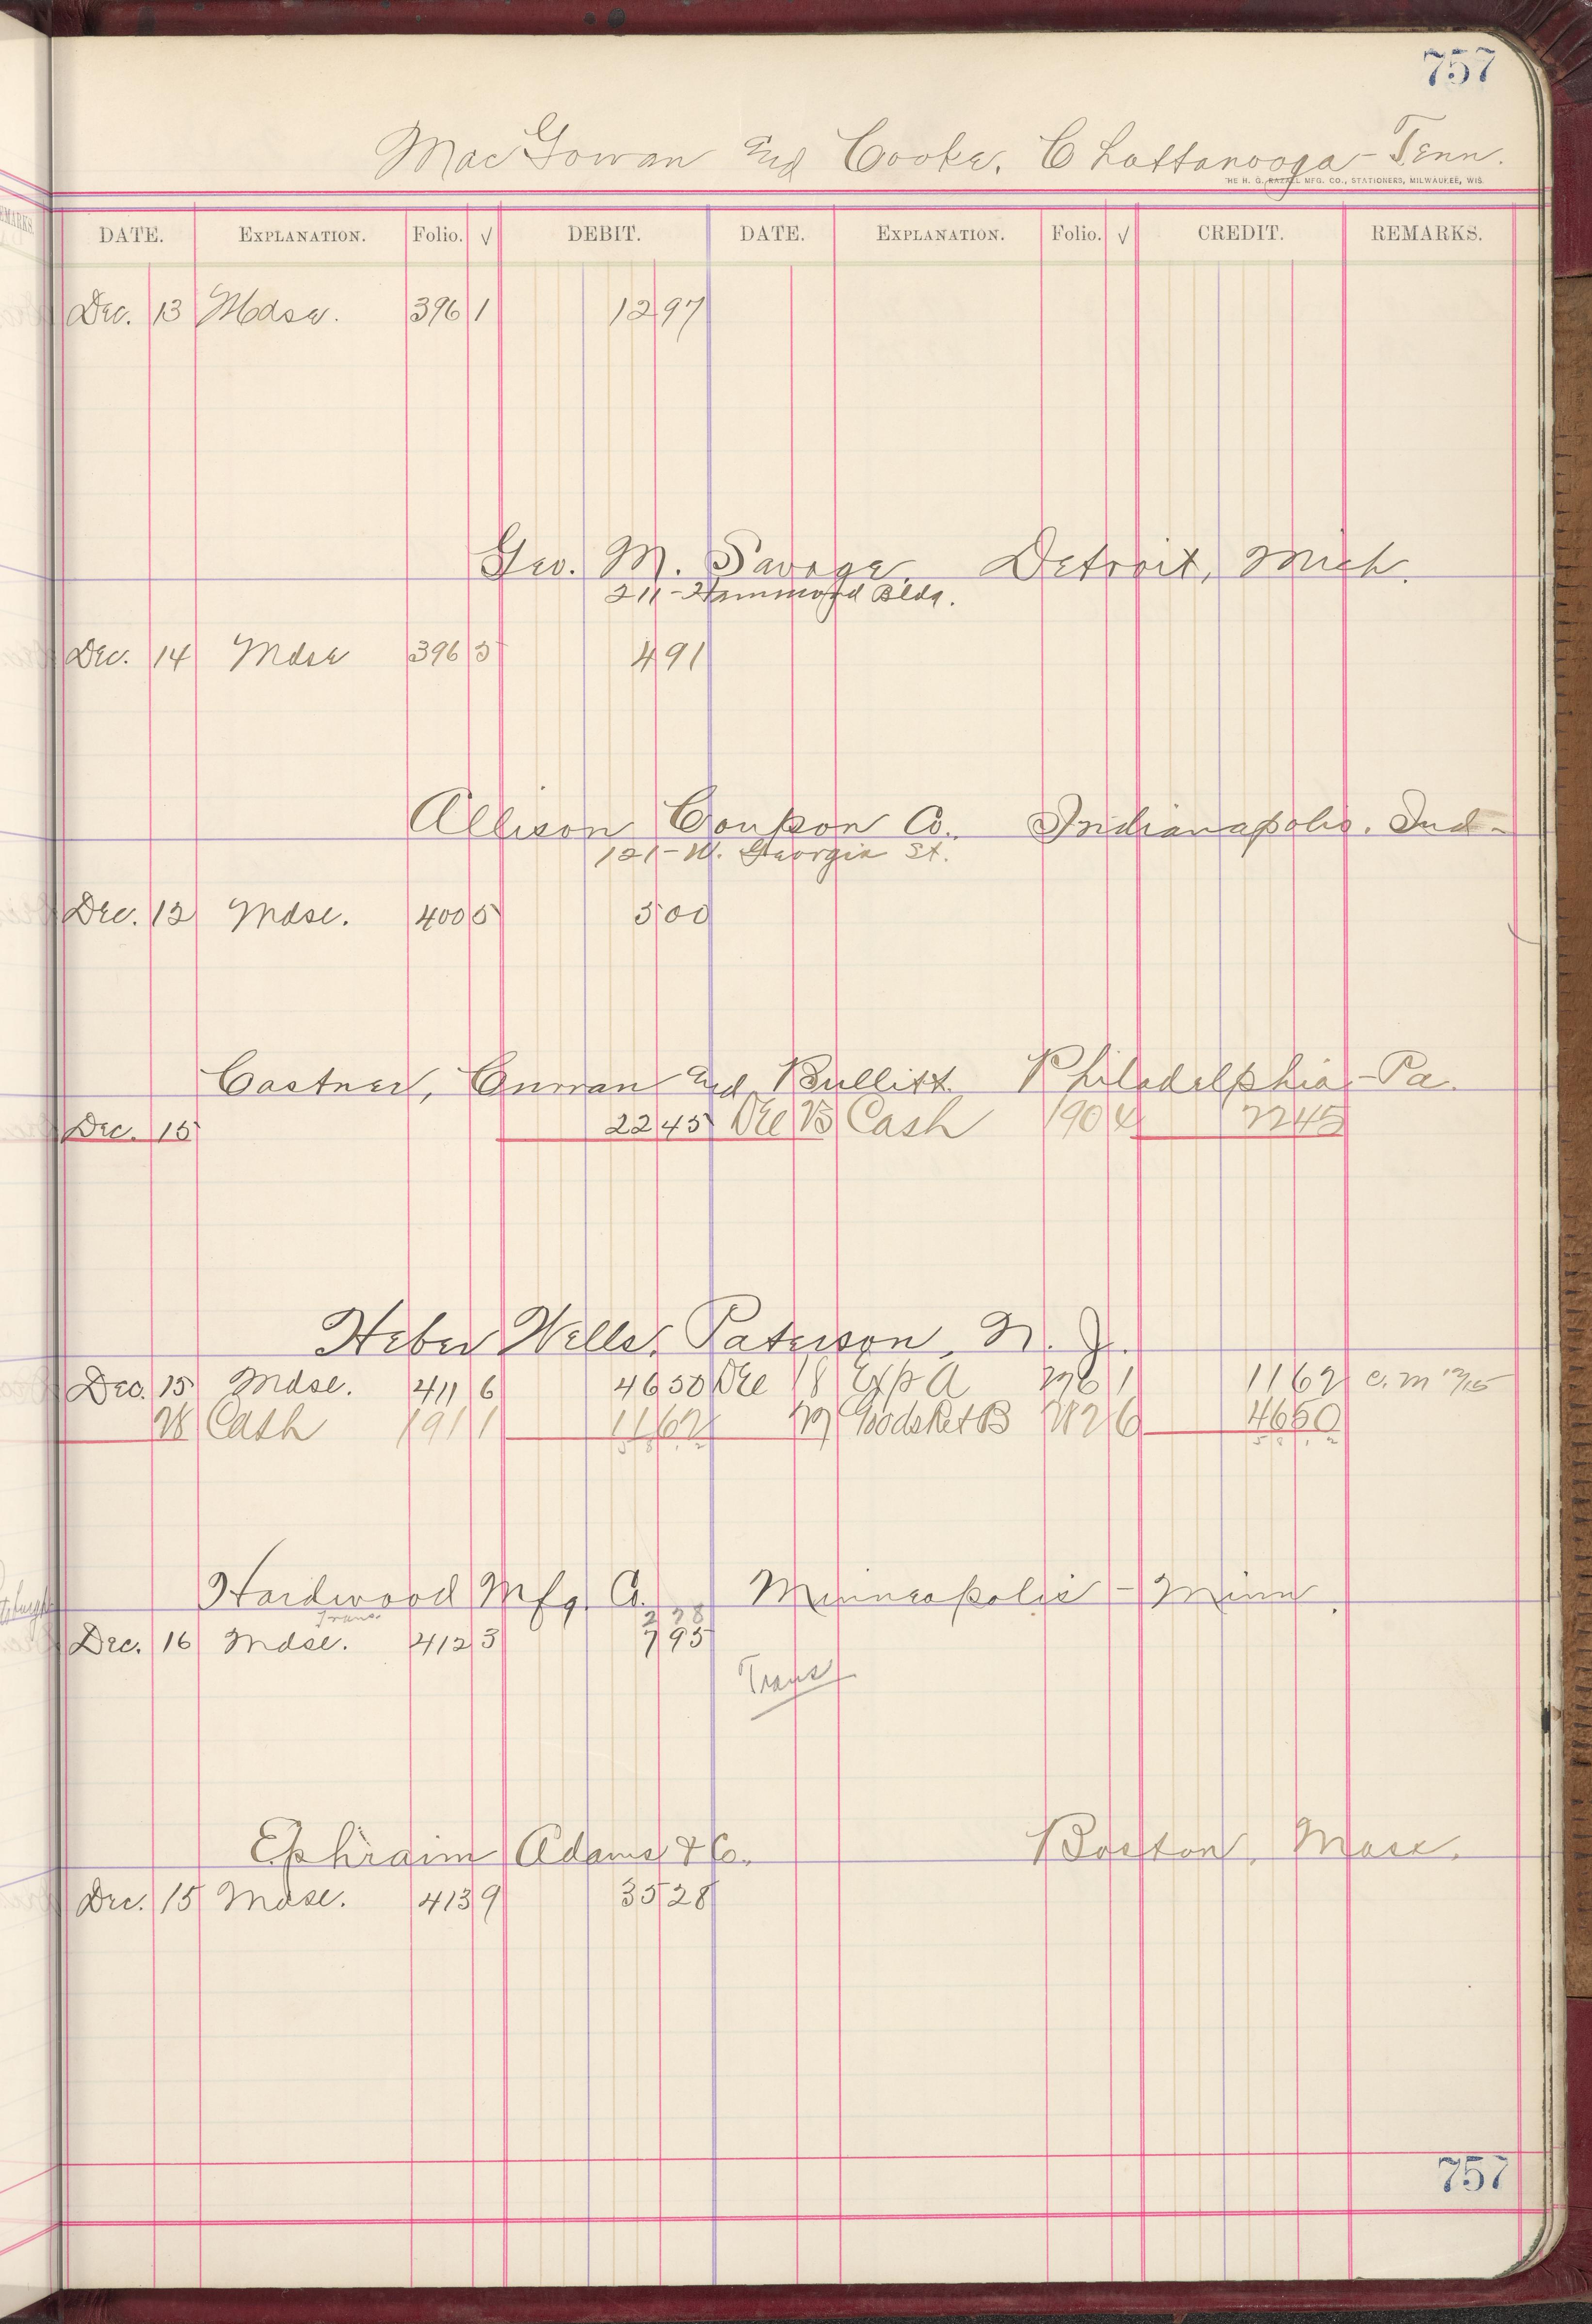 757
MacGowan and Cooke. Chattanooga - Tenn.
THE H. G. RAZALL MFG. CO., STATIONERS, MILWAUKEE, WIS.
DATE. EXPLANATION. Folio. √ DEBIT. DATE. EXPLANATION. Folio. √ CREDIT. REMARKS.
Dec. 13 Mdse. 396 1 12 97
Geo. M. Savage. Detroit, Mich.
211 - Hammond Bldg.
Dec. 14 Mdse 396 5 4 91
Allison Coupon Co. Indianapolis. Ind -
121 - W. Georgia St.
Dec. 12 Mdse. 400 5 5 00
Castner, Curran and Bullitt Philadelphia - Pa.
Dec. 15 22 45 Dec 15 Cash 190 4 22 45
Heber Wells, Paterson, N. J.
Dec. 15 Mdse. 411 6 46 50 Dec 18 Exp A 276 1 11 62 c. m 12/15
28 Cash 191 1 11 62 29 Goods Ret B 282 6 46 50
58 12 58 12
Hardwood Mfg. Co. Minneapolis - Minn.
Trans. 2 98
Dec. 16 Mdse. 412 3 7 95
Trans
Ephraim Adams & Co. Boston, Mass.
Dec. 15 Mdse. 413 9 35 28
757